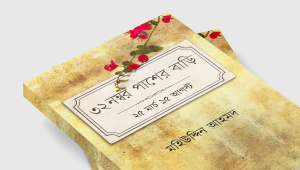 ৩২ নম্বর পাশের বাড়ি
২৫ মার্চ ১৫ আগস্ট
মহিউদ্দিন আহমদ